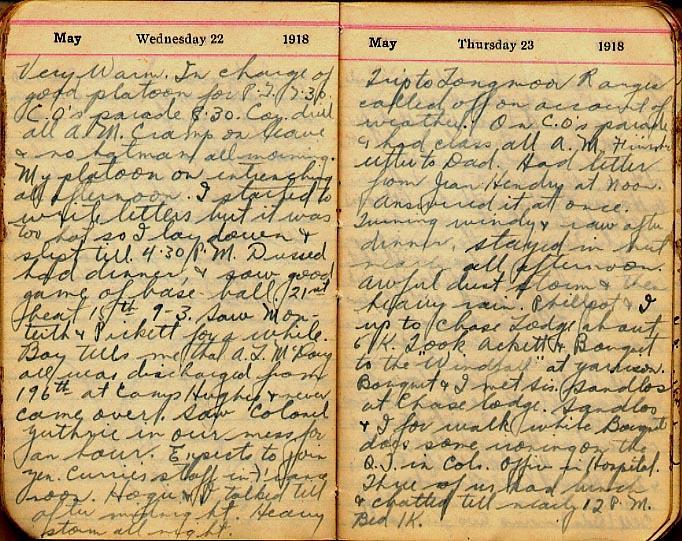 May Wednesday 22 1918
Very Warm. In charge of
good platoon for P.T. 7.30.
C.O's parade 8.30. Coy. drill
all A.M. Cramp on leave
& no batman all morning.
My platoon on intrenching
all afternoon. I started to
write letters but it was
too hot so I lay down &
slept till 4.30 P.M. Dussed
had dinner, & saw good
game of base ball. 21st
beat 19th 9-3. Saw Mon-
teith & Pickett for a while.
Boy tells me that A.L. McKay
all was discharged from
196th at Camp Hughes & never
came over. Saw Colonel
Guthrie in our mess for
an hour. Expects to join
Gen. Curries staff in France
soon. Hogue & I talked till
after midnight. Heavy
storm all night.
May Thursday 23 1918
Trip to Longmoor Ranges
called off on account of
weather. On C.O's parade
& had class all A.M. Finished
letter to Dad. Had letter
from Jean Hendry at noon.
Answered it at once.
Turning windy & raw after
dinner, stayed in hut
all afternoon.
Awful dust storm & then
heavy rain. Philpot & I
up to Chase Lodge about
6 K. Took Ackett & Bouquet
to the "Windfall" at garrison.
Bouquet & I met Sis. Sandlos
at Chase lodge. Sandlos
& I for walk while Bouquet
does some ironing on the
Q.T. in Cols. Office in Hospital.
Three of us had lunch
& chatted till nearly 12 P.M.
Bed 1K.